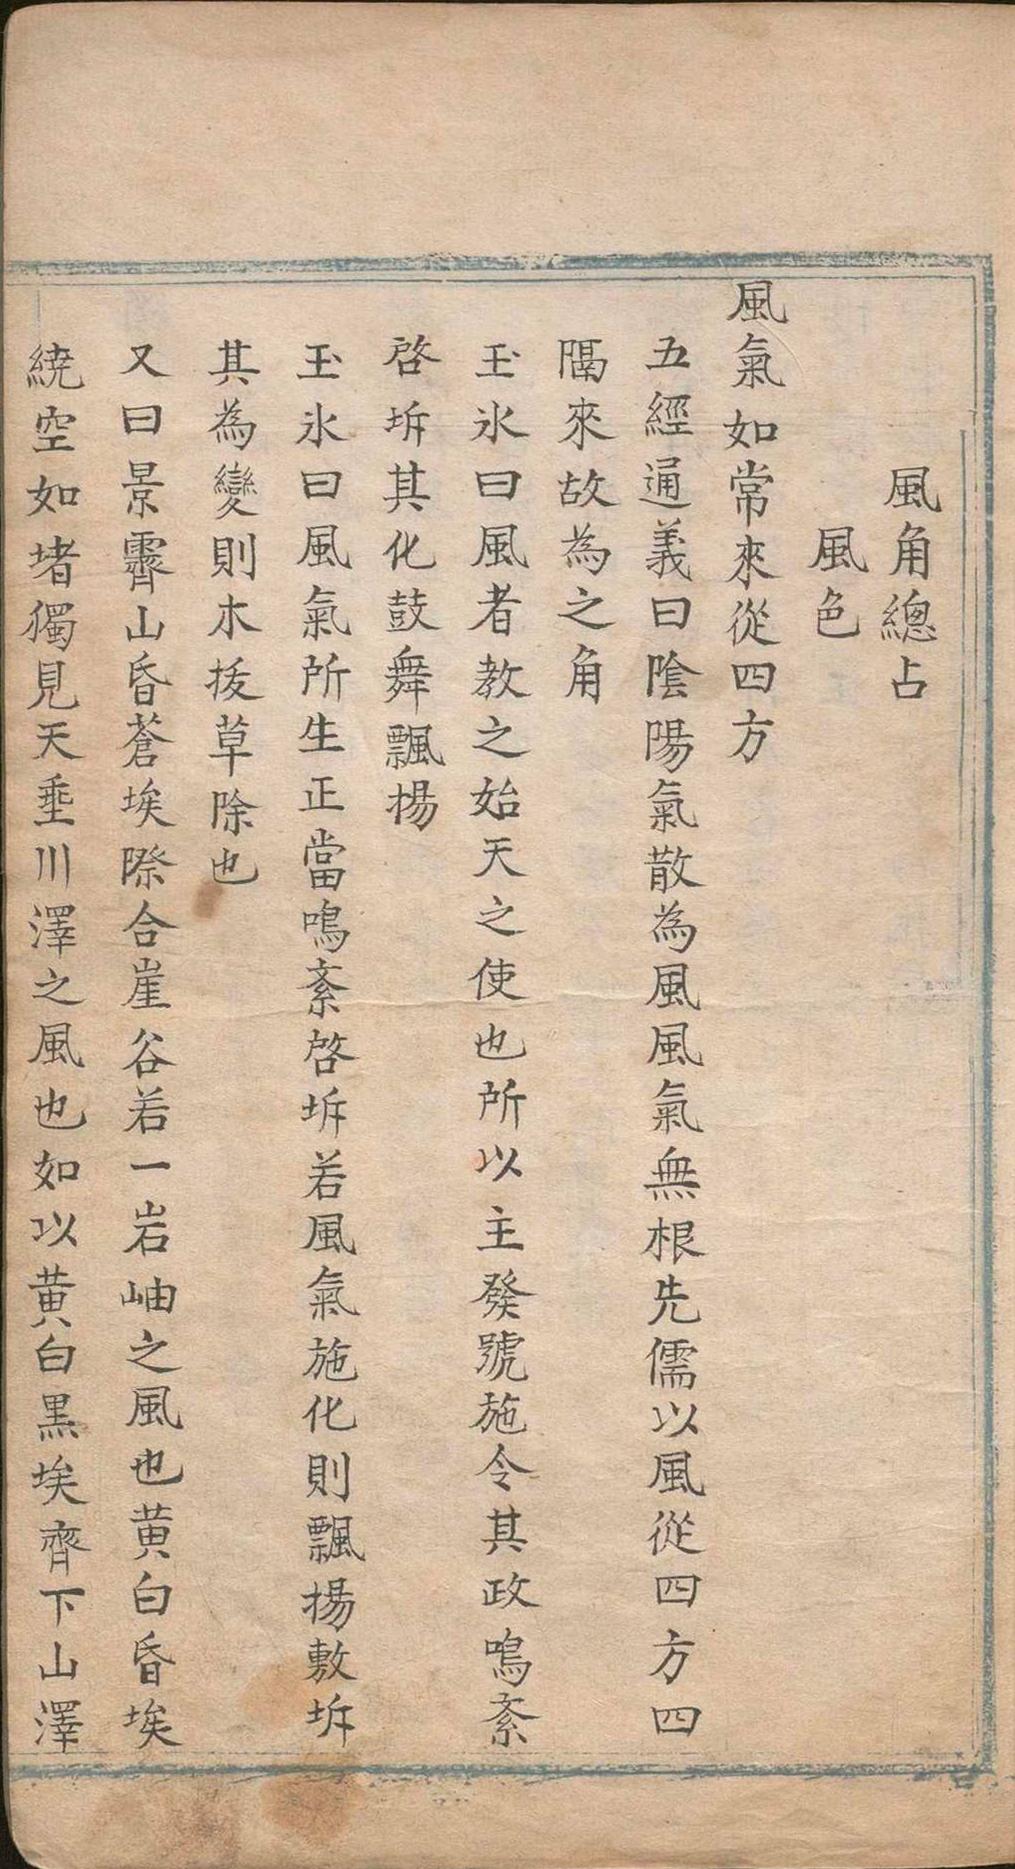 風角總占
風色
風氣如常來從四方
五經通義曰陰陽氣散為風風氣無根先儒以風從四方四
隅來故為之角
玉氷曰風者教之始天之使也所以主發號施令其政鳴紊
啓坼其化鼓舞飄揚
玉氷曰風氣所生正當鳴紊啓坼若風氣施化則飄揚敷坼
其為變則木拔草除也
又曰景霽山昏蒼埃際合崖谷若一岩岫之風也黄白昏埃
繞空如堵獨見天垂川澤之風也如以黄白黒埃齊下山澤